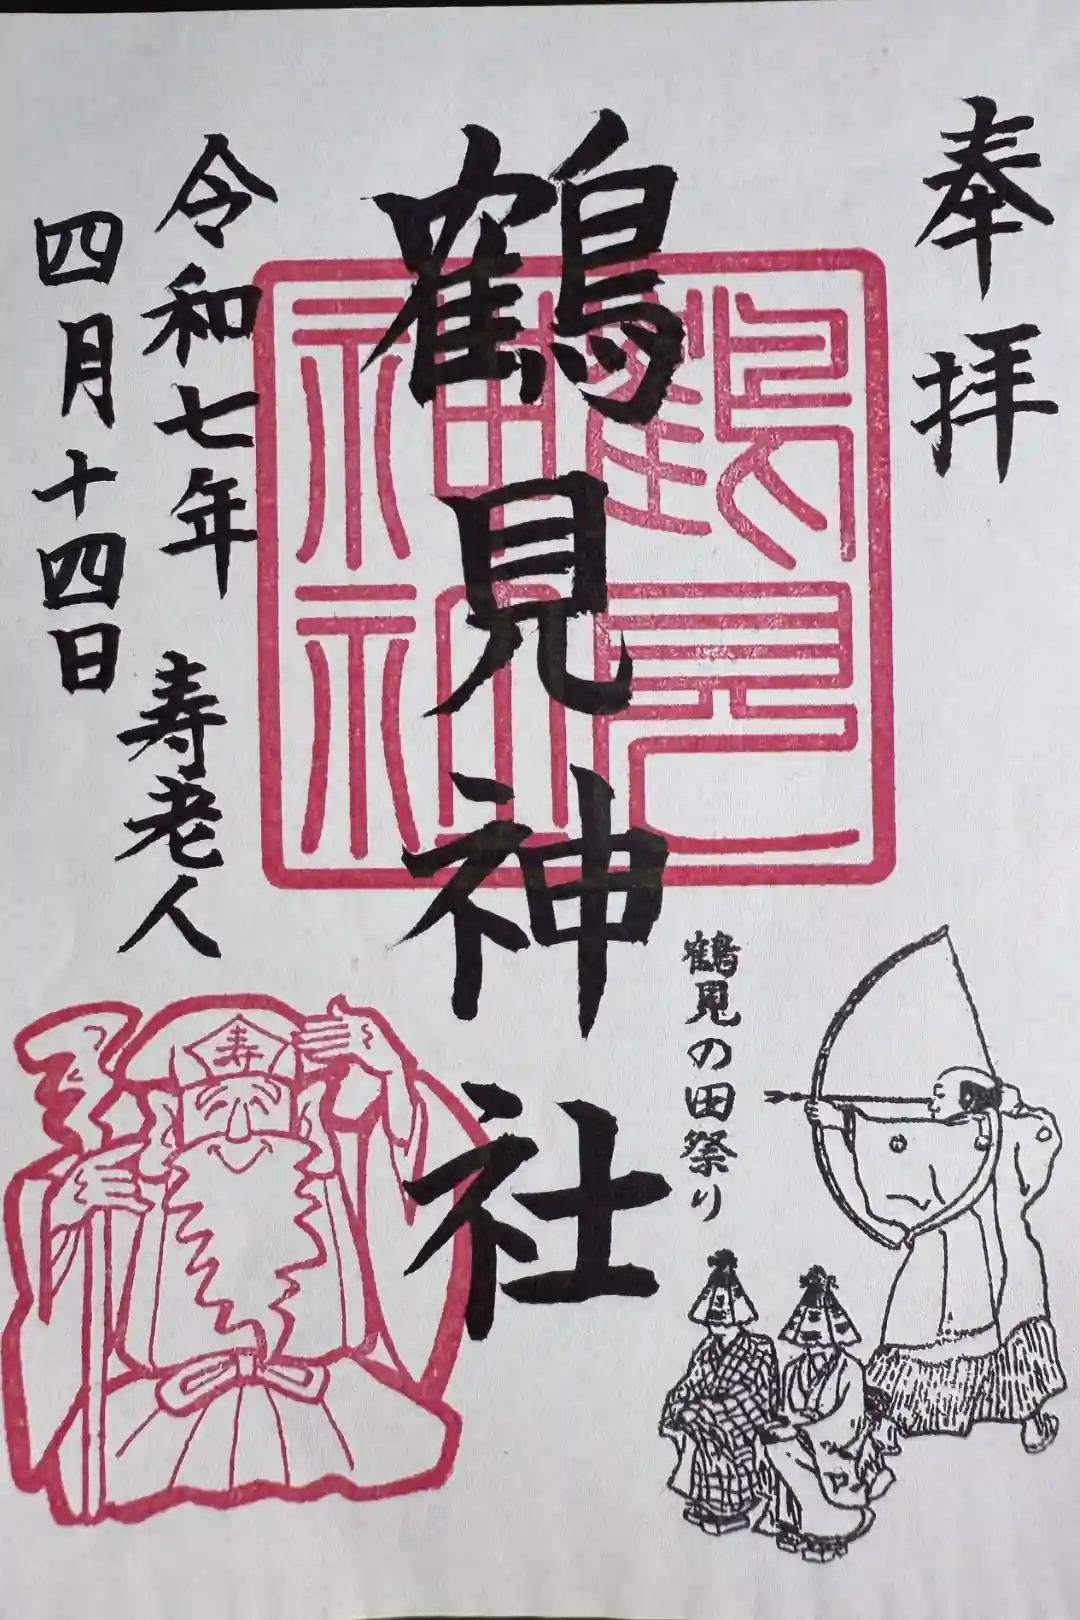 奉拝
鶴見神社
令和七年
四月十四日
寿老人
鶴見の田祭り
鶴見
神社
寿